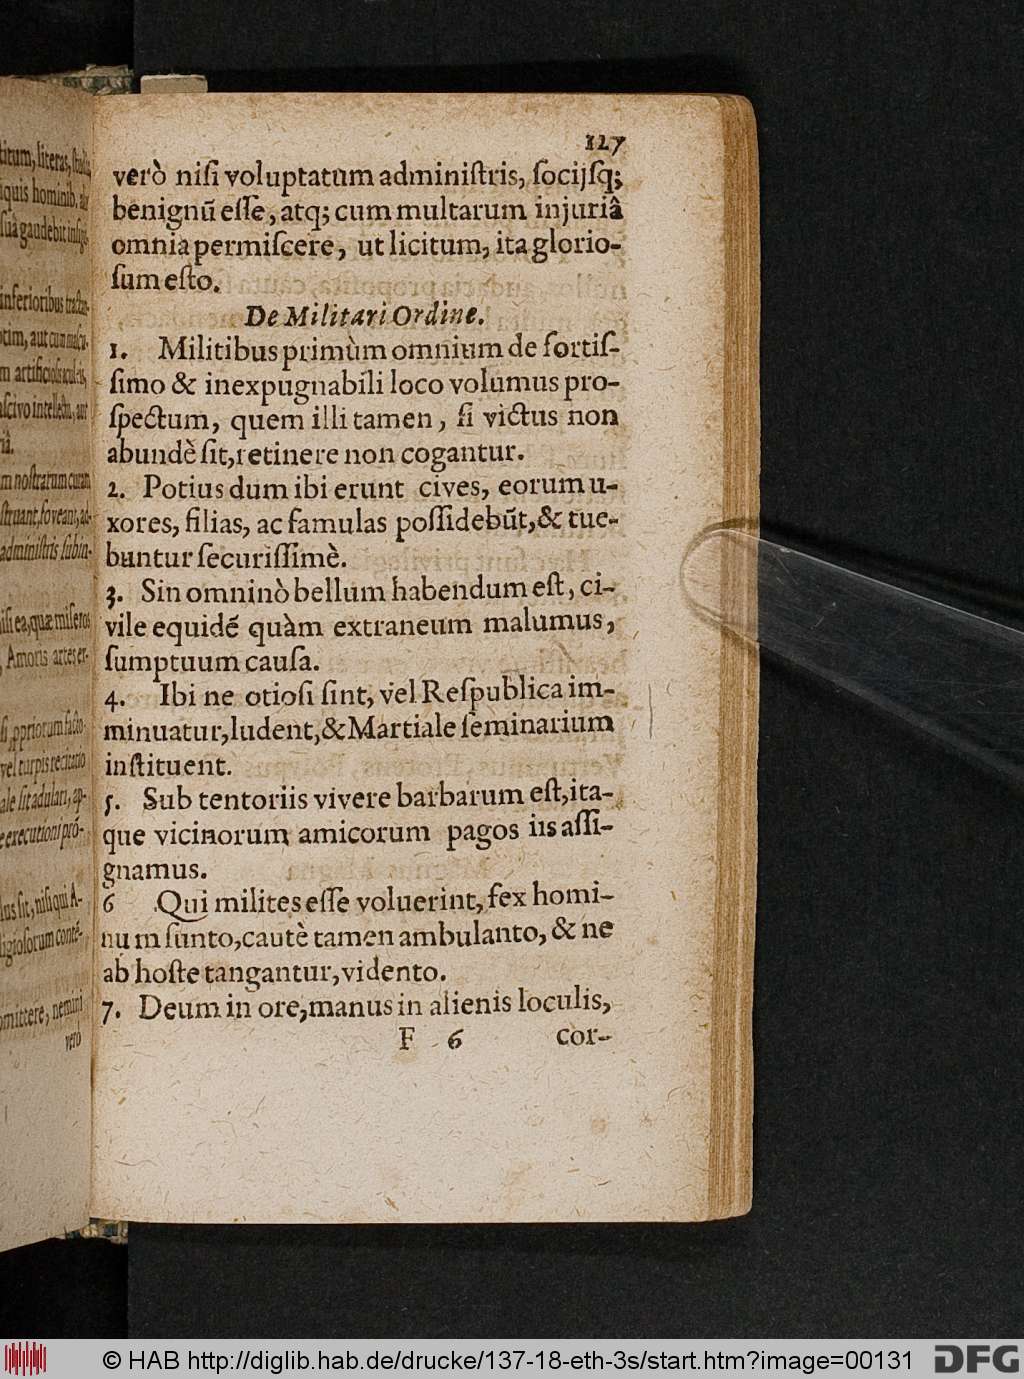 127
verò niſi voluptatum adminiſtris, ſocijſq;
benignũ eſſe, atq; cum multarum injuriâ
omnia permiſcere, ut licitum, ita glorio-
ſum eſto.
De Militari Ordine.
1. Militibus primùm omnium de fortiſ-
ſimo & inexpugnabili loco volumus pro-
ſpectum, quem illi tamen, ſi victus non
abundè ſit, retinere non cogantur.
2. Potius dum ibi erunt cives, eorum u-
xores, filias, ac famulas poſſidebũt, & tue-
buntur ſecuriſſimè.
3. Sin omninò bellum habendum eſt, ci-
vile equidẽ quàm extraneum malumus,
ſumptuum cauſa.
4. Ibi ne otioſi ſint, vel Reſpublica im-
minuatur, ludent, & Martiale ſeminarium
inſtituent.
5. Sub tentoriis vivere barbarum eſt, ita-
que vicinorum amicorum pagos iis aſſi-
gnamus.
6 Qui milites eſſe voluerint, fex homi-
num ſunto, cautè tamen ambulanto, & ne
ab hoſte tangantur, vidento.
7. Deum in ore, manus in alienis loculis,
F 6 cor-
© HAB http://diglib.hab.de/drucke/137-18-eth-3s/start.htm?image=00131
DFG